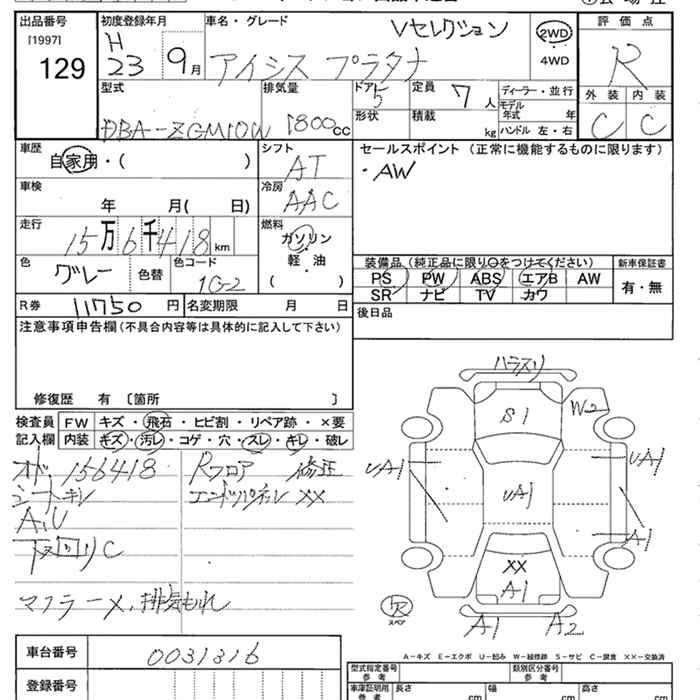 出品番号
[1997]
129
初度登録年月
H
23 9月
車名・グレード
Vセレクション
アイシス プラタナ
2WD
4WD
評価点
R
外装 内装
C C
型式
DBA-ZGM10W
排気量
1800cc
ドア
5
形状
定員
7人
積載
kg
ディーラー・並行
モデル
年式 年
ハンドル 左・右
車歴
自家用・( )
シフト
AT
セールスポイント(正常に機能するものに限ります)
・AW
車検
年 月( 日)
冷房
AAC
走行
15万6千418km
燃料
ガソリン
・
軽・油
( )
色
グレー
色替
色コード
1G-2
装備品(純正品に限り○をつけてください)
新車保証書
PS PW ABS エアB AW
SR ナビ TV カワ
有・無
R券 11750円
名変期限 月 日
後日品
注意事項申告欄(不具合内容等は具体的に記入して下さい)
修復歴 有 〔箇所 〕
検査員
記入欄
FW キズ・飛石・ヒビ割・リペア跡・×要
内装 キズ・汚レ・コゲ・穴・スレ・キレ・破レ
オド、156418
シートキレ
A,U
下回りC
マフラーメ、排気もれ
Rフロア 修正
エンドパネル XX
S1
W2
UA1
UA1
UA1
A1
XX
A1
R
スペア
A1 A2
A-キズ E-エクボ U-凹み W-補修跡 S-サビ C-腐食 ××-交換済
車台番号
0031316
登録番号
型式指定番号
参考
類別区分番号
参考
車庫証明用
参考
長さ cm
幅 cm
高さ cm